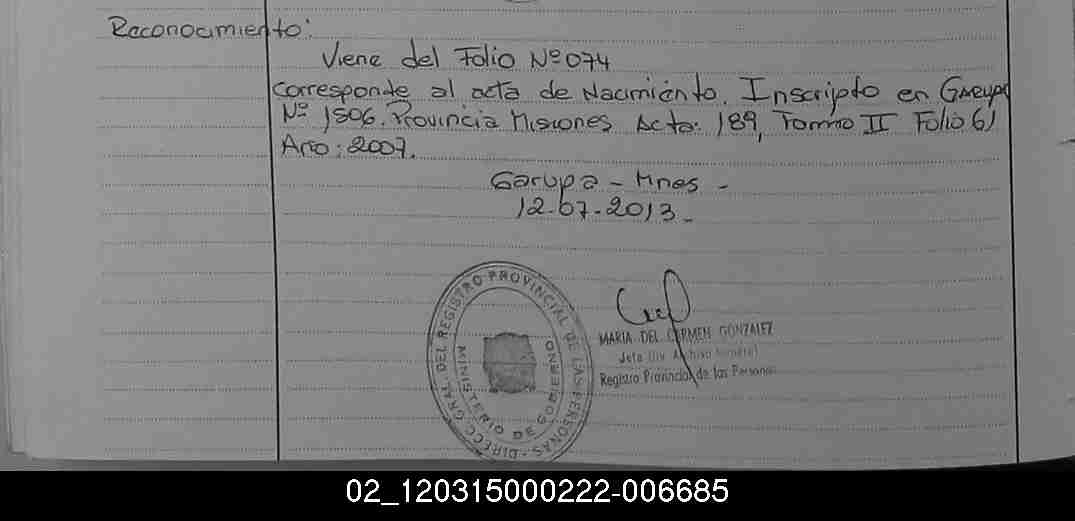 Reconocimiento:
Viene del Folio Nº 074
Corresponde al acta de Nacimiento. Inscripto en Garupa
Nº 1506. Provincia Misiones Acta: 189, Tommo II Folio 61
Año: 2007.
Garupa - Mnes -
12-07-2013-
DIRECC. GRAL. DEL REGISTRO PROVINCIAL DE LAS PERSONAS -
MINISTERIO DE GOBIERNO
MARIA DEL CARMEN GONZALEZ
Jefa Div. Archivo General
Registro Provincial de las Personas
02_120315000222-006685